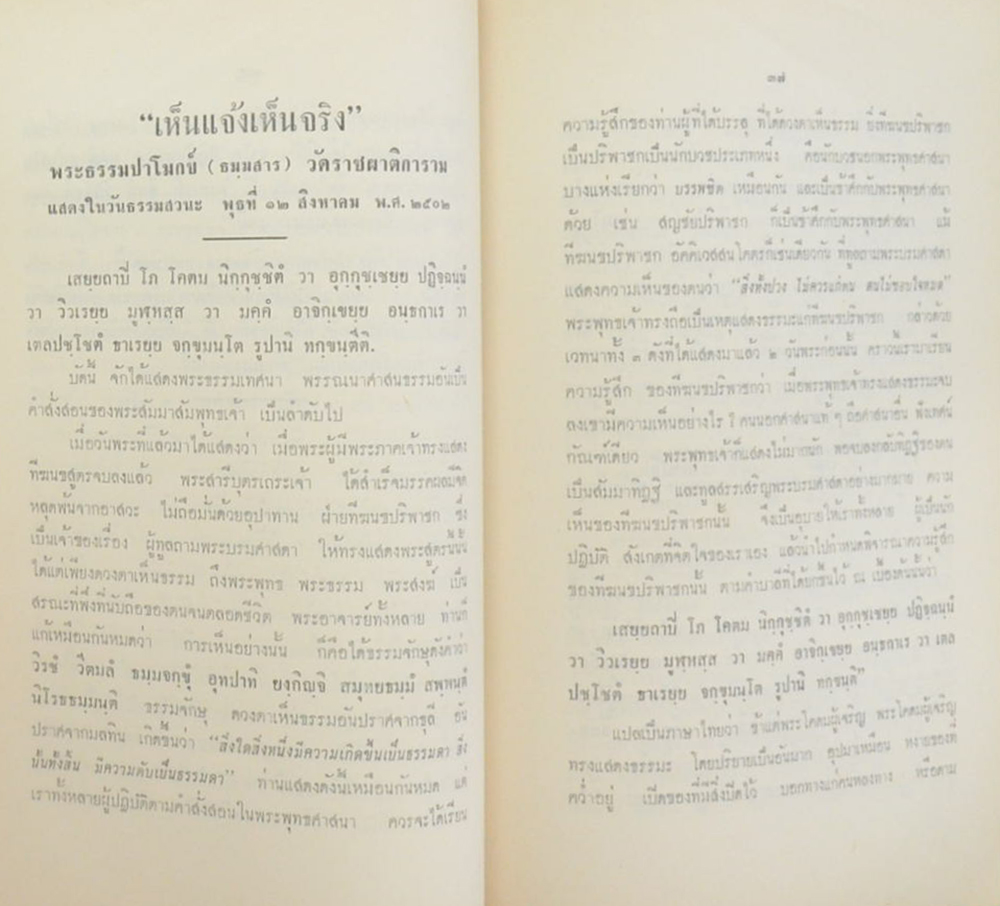 “เห็นแจ้งเห็นจริง”
พระธรรมปาโมกข์ (ธมฺมสาร) วัดราชผาติการาม
แสดงในวันธรรมสวนะ พุธที่ ๑๒ สิงหาคม พ.ศ. ๒๕๐๒
เสยฺยถาปี โภ โคตม นิกฺกุชฺชิตํ วา อุกฺกุชฺเชยฺย ปฏิจฺฉนฺนํ
วา วิวเรยฺย มูฬฺหสฺส วา มคฺคํ อาจิกฺเขยฺย อนฺธกาเร วา
เตลปชฺโชตํ ธาเรยฺย จกฺขุมนฺโต รูปานิ ทกฺขนฺตีติ.
บัดนี้ จักได้แสดงพระธรรมเทศนา พรรณนาศาสนธรรมอันเป็น
คำสั่งสอนของพระสัมมาสัมพุทธเจ้า เป็นลำดับไป
เมื่อวันพระที่แล้วมาได้แสดงว่า เมื่อพระผู้มีพระภาคเจ้าทรงแสดง
ทีฆนขสูตรจบลงแล้ว พระสารีบุตรเถระเจ้า ได้สำเร็จมรรคผลมีจิต
หลุดพ้นจากอาสวะ ไม่ถือมั่นด้วยอุปาทาน ฝ่ายทีฆนขปริพาชก ซึ่ง
เป็นเจ้าของเรื่อง ผู้ทูลถามพระบรมศาสดา ให้ทรงแสดงพระสูตรนี้นั้น
ได้แต่เพียงดวงตาเห็นธรรม ถึงพระพุทธ พระธรรม พระสงฆ์ เป็น
สรณะที่พึ่งที่นับถือของตนจนตลอดชีวิต พระอาจารย์ทั้งหลาย ท่านก็
แก้เหมือนกันหมดว่า การเห็นอย่างนั้น ก็คือได้ธรรมจักษุดังคำว่า
วิรชํ วีตมลํ ธมฺมจกฺขุํ อุทปาทิ ยงฺกิญฺจิ สมุทยธมฺมํ สพฺพนฺตํ
นิโรธธมฺมนฺติ ธรรมจักษุ ดวงตาเห็นธรรมอันปราศจากธุลี อัน
ปราศจากมลทิน เกิดขึ้นว่า “สิ่งใดสิ่งหนึ่งมีความเกิดขึ้นเป็นธรรมดา สิ่ง
นั้นทั้งสิ้น มีความดับเป็นธรรมดา” ท่านแสดงดังนี้เหมือนกันหมด แต่
เราทั้งหลายผู้ปฏิบัติตามคำสั่งสอนในพระพุทธศาสนา ควรจะได้เรียน
๓๗
ความรู้สึกของท่านผู้ที่ได้บรรลุ ที่ได้ดวงตาเห็นธรรม ซึ่งทีฆนขปริพาชก
เป็นปริพาชกเป็นนักบวชประเภทหนึ่ง คือนักบวชนอกพระพุทธศาสนา
บางแห่งเรียกว่า บรรพชิต เหมือนกัน และเป็นข้าศึกกับพระพุทธศาสนา
ด้วย เช่น สญชัยปริพาชก ก็เป็นข้าศึกกับพระพุทธศาสนา แม้
ทีฆนขปริพาชก อัคคิเวสสนโคตรก็เช่นเดียวกัน ที่ทูลถามพระบรมศาสดา
แสดงความเห็นของตนว่า “สิ่งทั้งปวง ไม่ควรแก่ตน ตนไม่ชอบใจหมด”
พระพุทธเจ้าทรงถือเป็นเหตุแสดงธรรมะแก่ทีฆนขปริพาชก กล่าวด้วย
เวทนาทั้ง ๓ ดังที่ได้แสดงมาแล้ว ๒ วันพระก่อนนั้น คราวนี้เรามาเรียน
ความรู้สึก ของทีฆนขปริพาชกว่า เมื่อพระพุทธเจ้าทรงแสดงธรรมะจบ
ลงเขามีความเห็นอย่างไร ? คนนอกศาสนาแท้ ๆ ถือศาสนาอื่น ฟังเทศน์
กัณฑ์เดียว พระพุทธเจ้าก็แสดงไม่มากนัก พอจบลงกลับทิฏฐิของตน
เป็นสัมมาทิฏฐิ และทูลสรรเสริญพระบรมศาสดาอย่างมากมาย ความ
เห็นของทีฆนขปริพาชกนั้น จึงเป็นอุบายให้เราทั้งหลาย ผู้เป็นนัก
ปฏิบัติ สังเกตที่จิตใจของเราเอง แล้วนำไปกำหนดพิจารณาความรู้สึก
ของทีฆนขปริพาชกนั้น ตามคำบาลีที่ได้ยกขึ้นไว้ ณ เบื้องต้นนั้นว่า
เสยฺยถาปี โภ โคตม นิกฺกุชฺชิตํ วา อุกฺกุชฺเชยฺย ปฏิจฺฉนฺนํ
วา วิวเรยฺย มูฬฺหสฺส วา มคฺคํ อาจิกฺเขยฺย อนฺธกาเร วา เตล
ปชฺโชตํ ธาเรยฺย จกฺขุมนฺโต รูปานิ ทกฺขนฺติ”
แปลเป็นภาษาไทยว่า ข้าแต่พระโคดมผู้เจริญ พระโคดมผู้เจริญ
ทรงแสดงธรรมะ โดยปริยายเป็นอันมาก อุปมาเหมือน หงายของที่
คว่ำอยู่ เปิดของที่มีสิ่งปิดไว้ บอกทางแก่คนหลงทาง หรือตาม